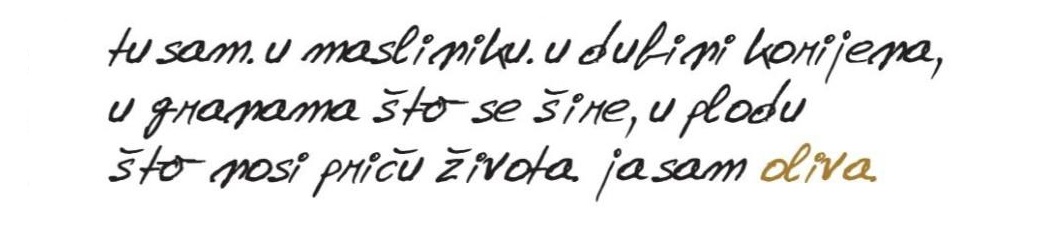 tu sam. u masliniku. u dubini korijena,
u granama što se šire, u plodu
što nosi priču života. ja sam oliva.